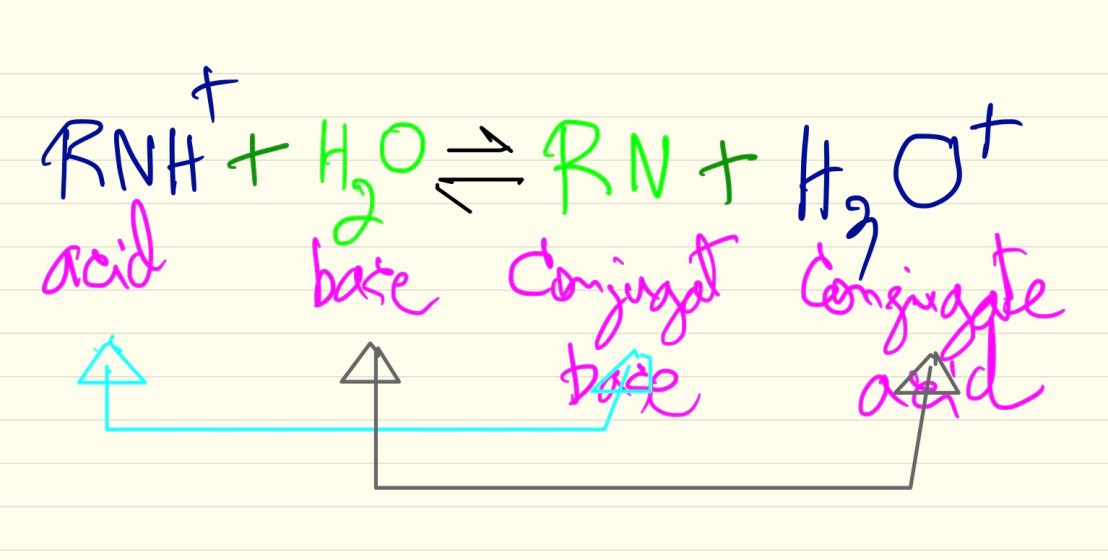 RNH⁺ + H₂O ⇌ RN + H₃O⁺
acid base Conjugat Conjugate
base acid